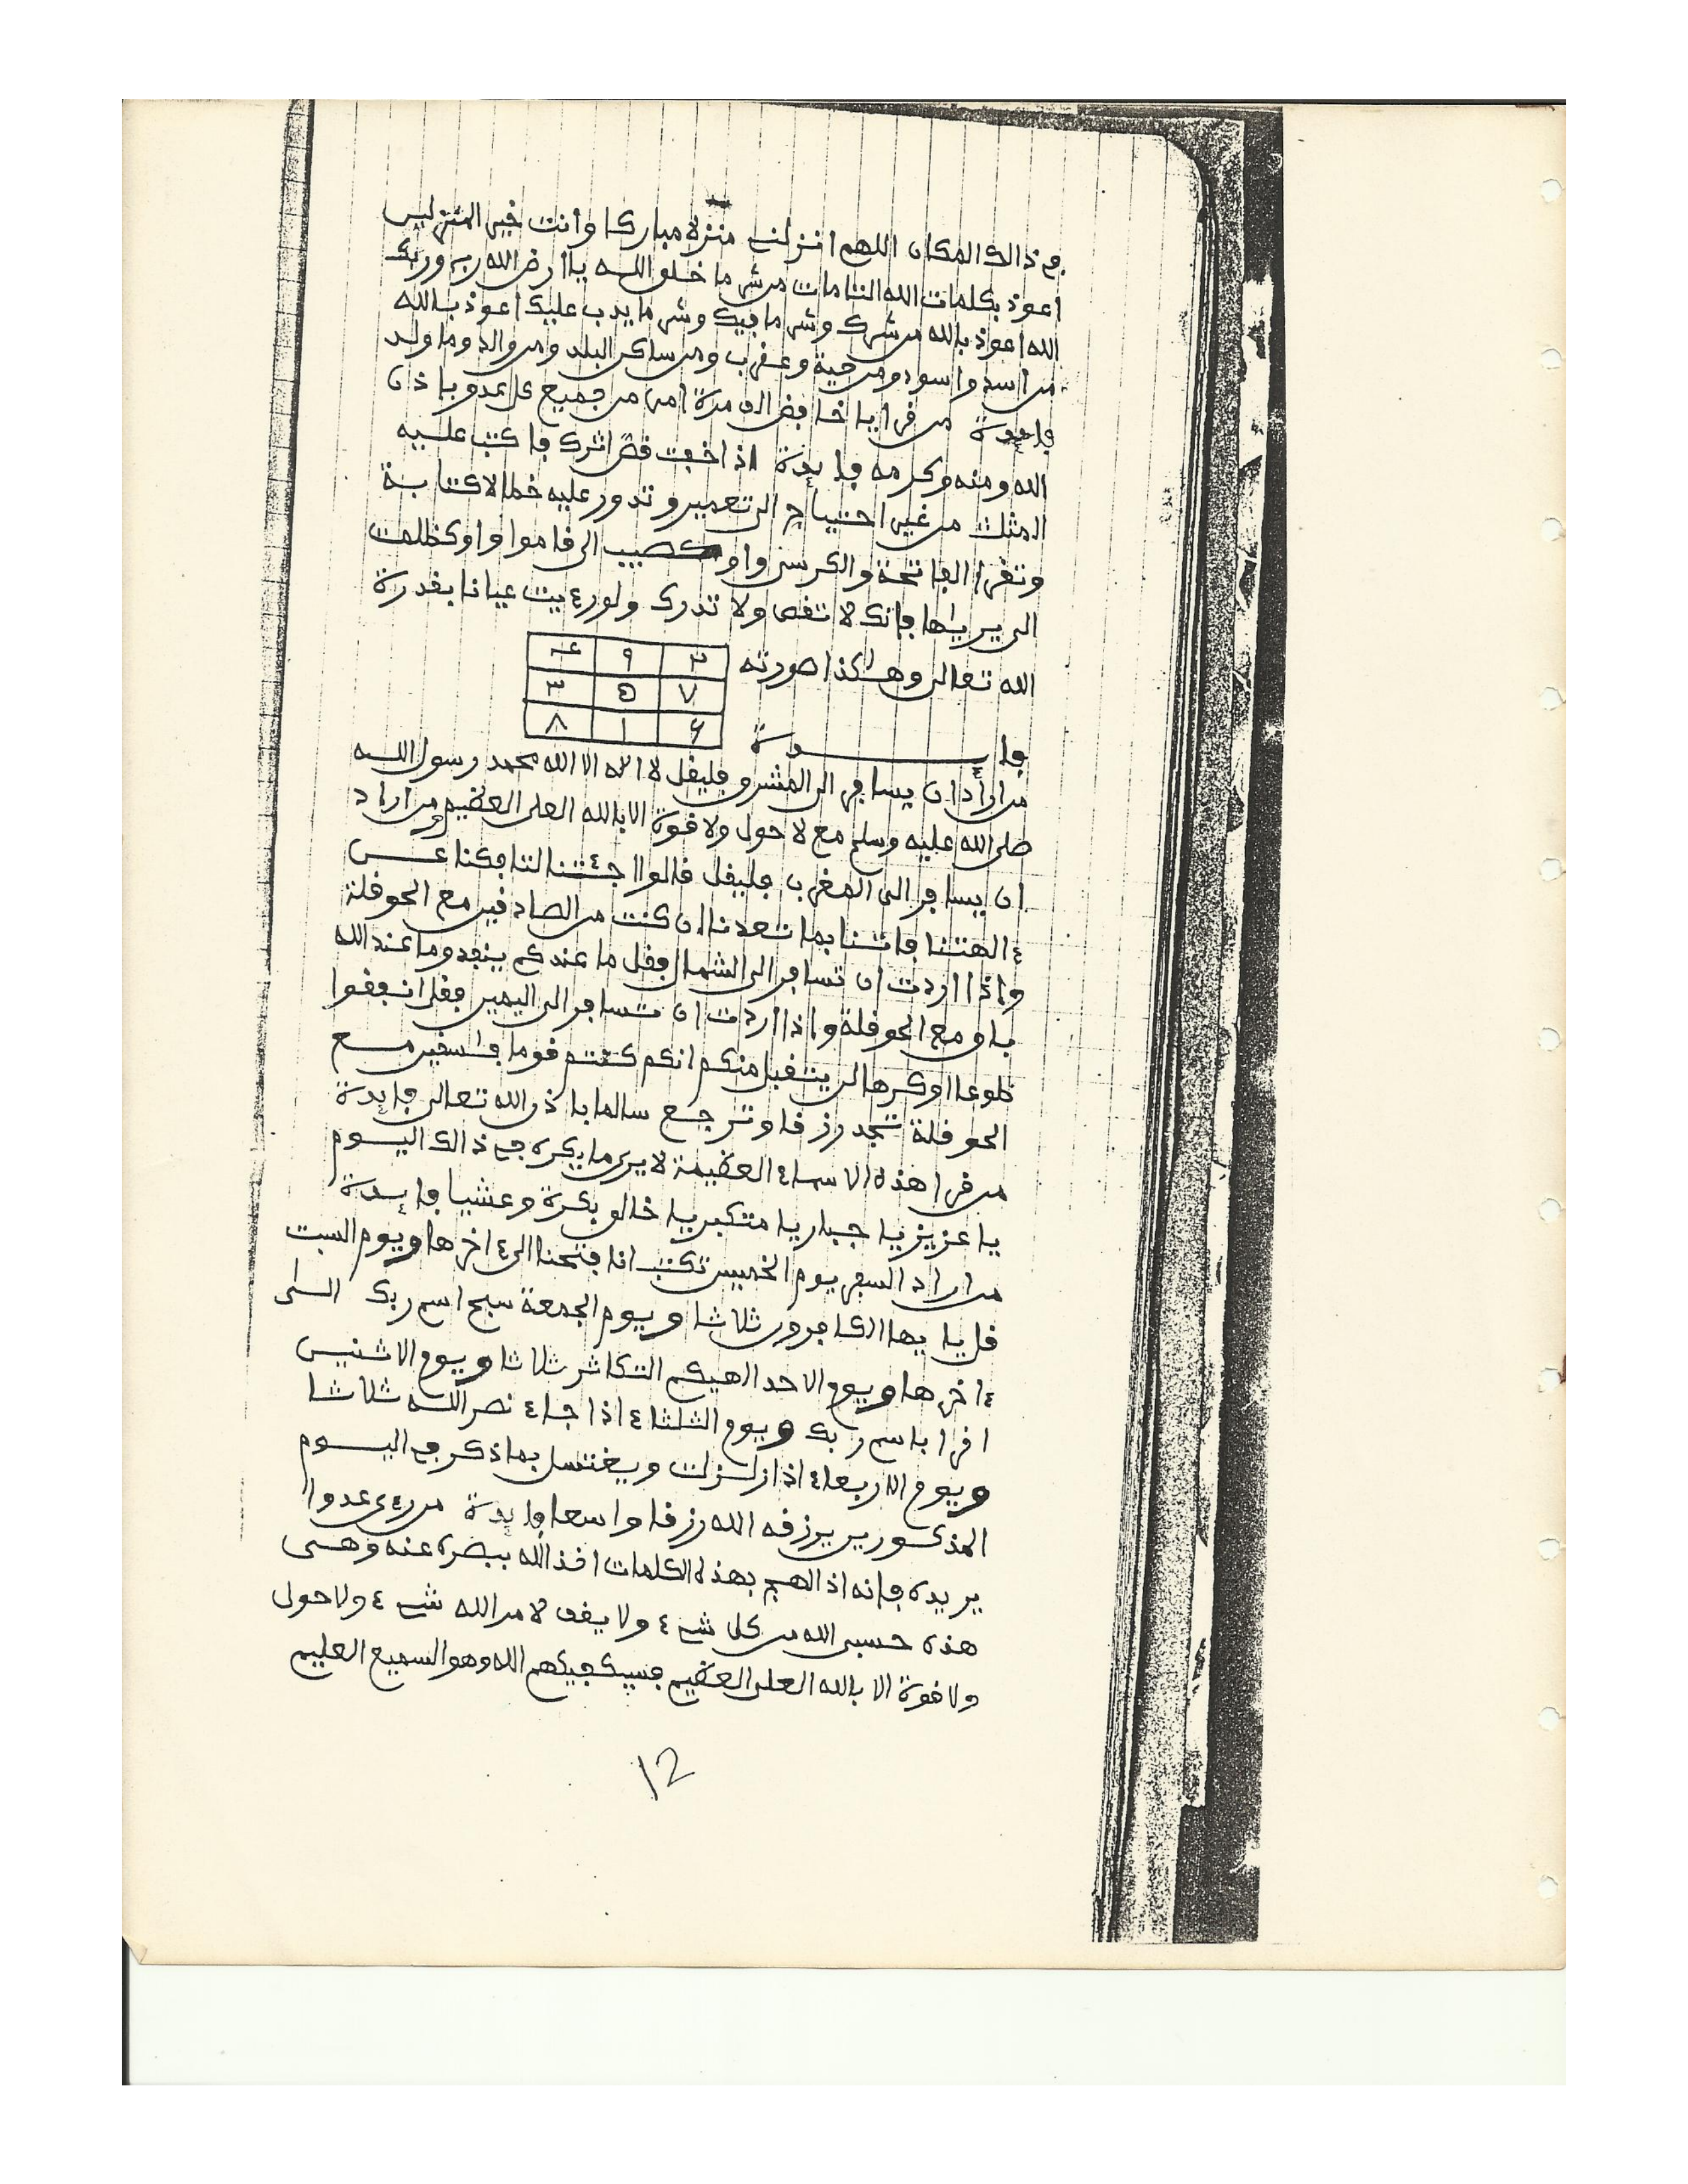 في ذالك المكان اللهم انزلني منزلا مباركا وأنت خير المنزلين
اعوذ بكلمات الله التامات من شر ما خلق اللــه يا ارض الله ربي وربك
الله اعوذ بالله من شرك وشر ما فيك وشر ما يدب عليك اعوذ بالله
من اسد واسود ومن حية وعقرب ومن ساكن البلد ومن والد وما ولد
فايدة من قرا يا خافض الف مرة امن من جميع كل عدو باذن
الله ومنه وكرمه فايدة اذا خفت قص اثرك فاكتب عليه
المثلث من غير احتياج الى تعمير وتدور عليه خطا لا كتابة
وتقرا الفاتحة والكرسي واو كصيب الى قاموا واو كظلمت
الى يريها فانك لا تقص ولا تدرك ولو رءيت عيانا بقدرة
الله تعالى وهكذا صورته
٢ ٩ ٤
٧ ٥ ٣
٦ ١ ٨
فايــــدة
من اراد ان يسافر الى المشرق فليقل لا اله الا الله محمد رسول اللــه
صلى الله عليه وسلم مع لا حول ولا قوة الا بالله العلي العظيم ومن اراد
ان يسافر الى المغرب فليقل قالوا اجئتنا لتافكنا عـــن
ءالهتنا فاتنا بما تعدنا ان كنت من الصادقين مع الحوقلة
واذا اردت ان تسافر الى الشمال فقل ما عندكم ينفد وما عند الله
باق مع الحوقلة واذا اردت ان تسافر الى اليمين فقل انفقوا
طوعا او كرها لن يتقبل منكم انكم كنتم قوما فسقين مــع
الحوقلة تجد رزقا وترجع سالما باذن الله تعالى فايدة
من قرا هذه الاسماء العظيمة لا يرى ما يكره في ذالك اليــوم
يا عزيز يا جبار يا متكبر يا خالق بكرة وعشيا فايــدة
من اراد السفر يوم الخميس تكتب انا فتحنا الى ءاخرها ويوم السبت
قل يايها الكافرون ثلاثا ويوم الجمعة سبح اسم ربك الــى
ءاخرها ويوم الاحد الهيكم التكاثر ثلاثا ويوم الاثنيــن
اقرا باسم ربك ويوم الثلثاء اذا جاء نصر اللــه ثلاثــا
ويوم الاربعاء اذا زلــزلت ويغتسل بماذكر في اليـــوم
المذكــورين يرزقه الله رزقا واسعا فايدة من رءى عدوا
يريده فانه اذا الهــم بهذه الكلمات اخذ الله ببصره عنه وهــى
هذه حسبي الله من كل شيء ولا يقف لامر الله شيء ولا حول
ولا قوة الا بالله العلي العظيم فسيكفيكهم الله وهو السميع العليم
12